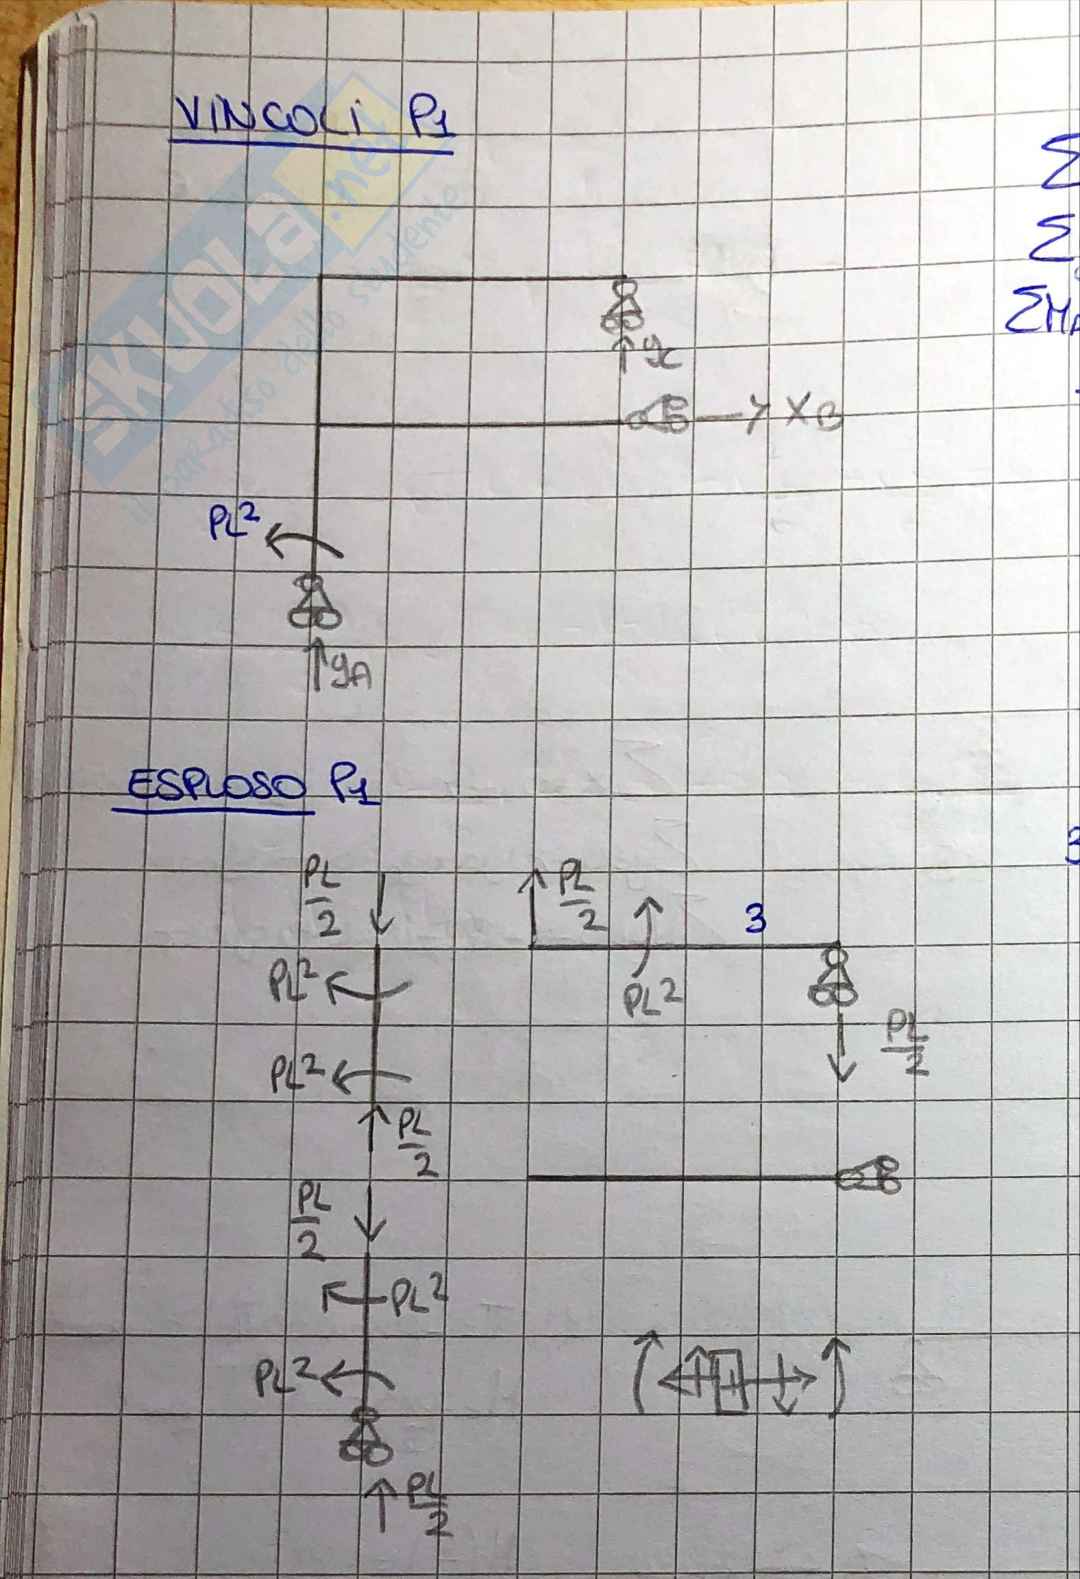 VINCOLI P1
SKUOLA.net
il paradiso dello studente
Σ
Σ
ΣMA
yC
XB
PL²
yA
ESPLOSO P1
PL/2
PL/2
3
3
PL²
PL²
PL²
PL/2
PL/2
PL/2
PL²
PL²
PL/2